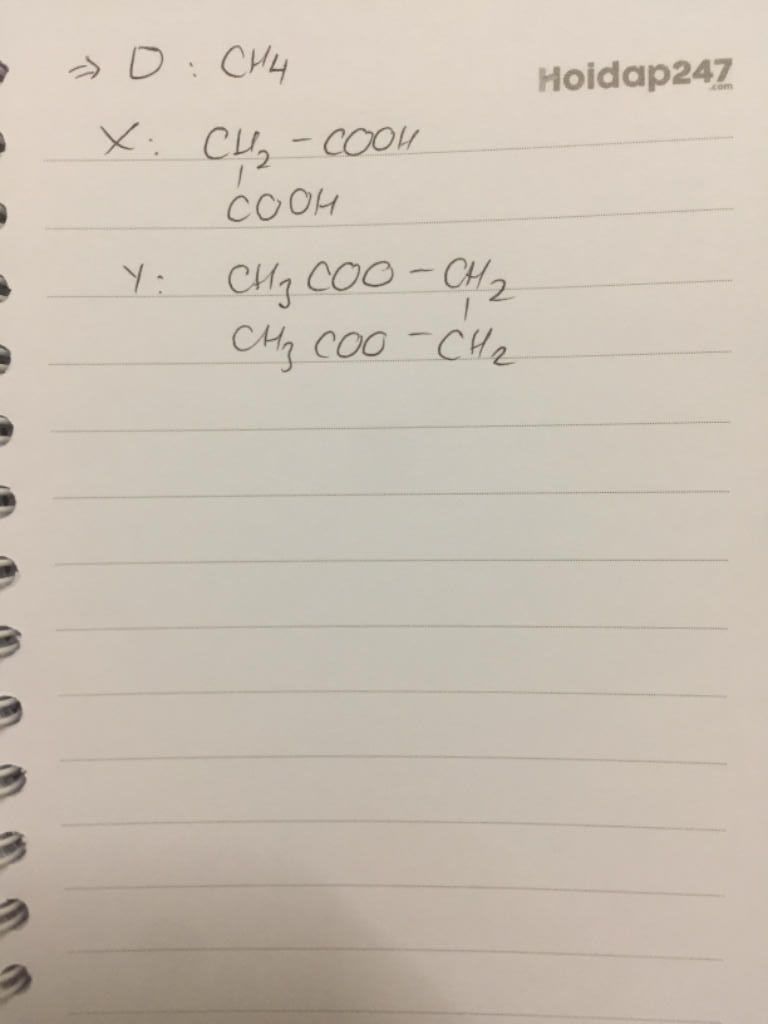 ⇒ D : CH4
Hoidap247
.com
X: CH2 - COOH
COOH
Y: CH3 COO - CH2
CH3 COO - CH2